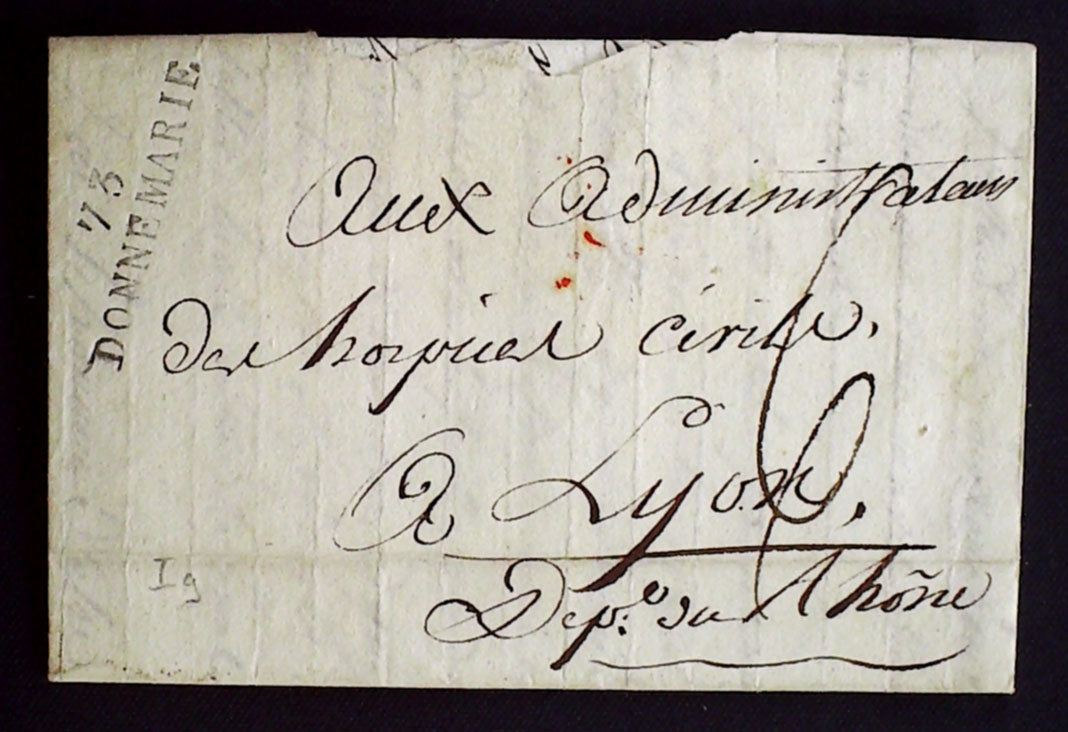 73
DONNEMARIE
Aux Administrateurs
des hospices civils.
A Lyon.
Dep.t du Rhône
6
Ig